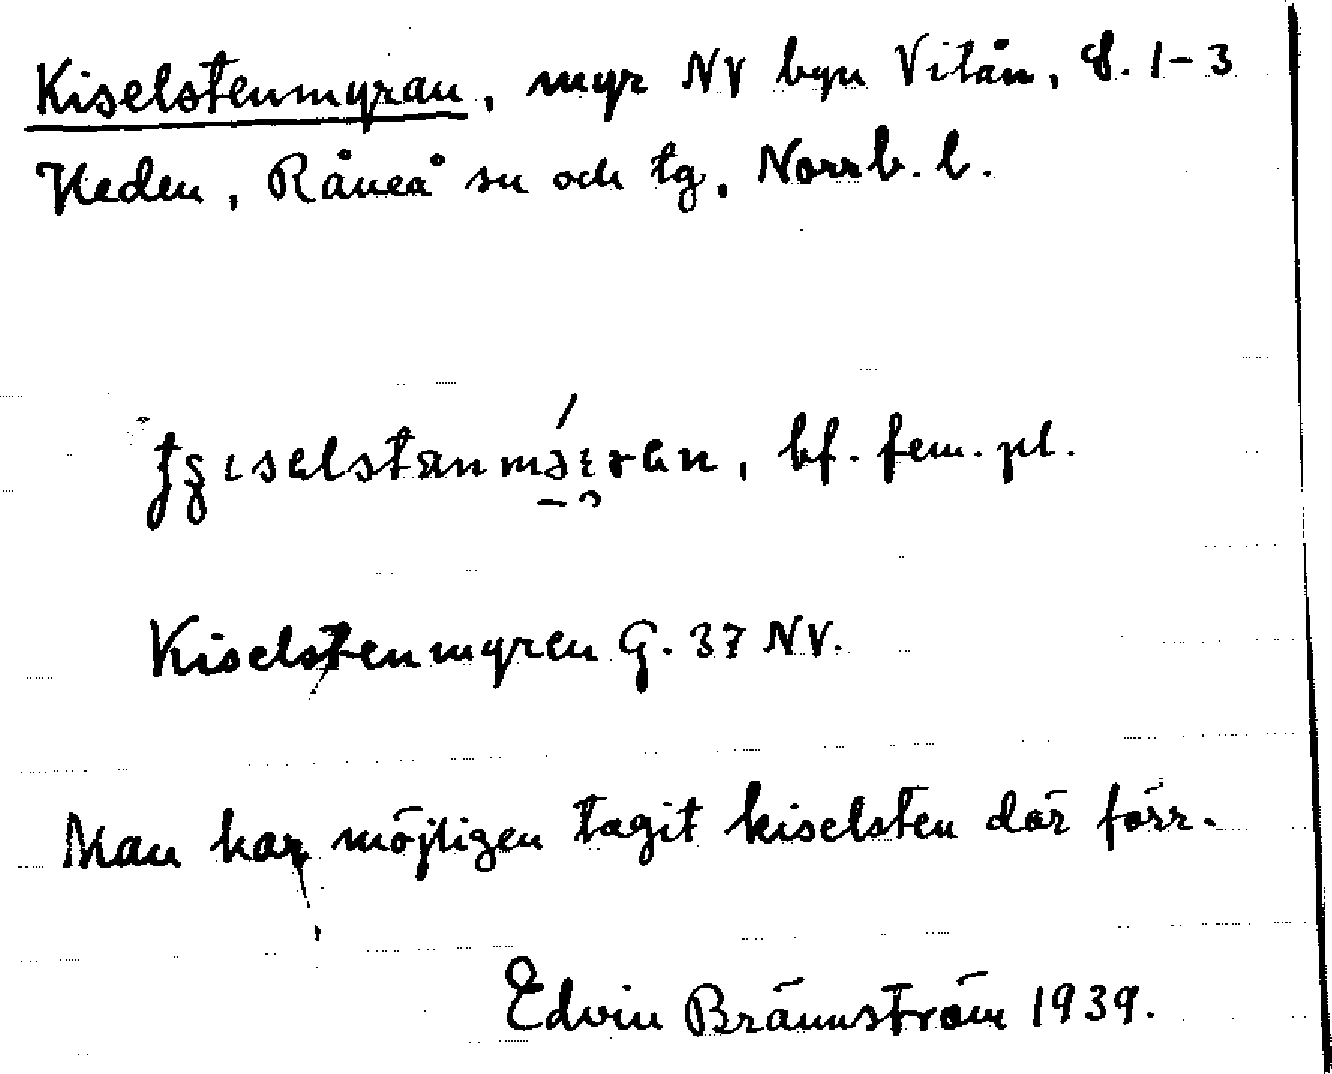 Kiselstenmyran, myr NV byn Vitån, 8. 1-3
Heden, Råneå sn och tg, Norrb. l.
bf. fem. pl.
Kiselstenmyren G. 37 NV.
Man har möjligen tagit kiselsten där förr.
Edvin Brännström 1939.